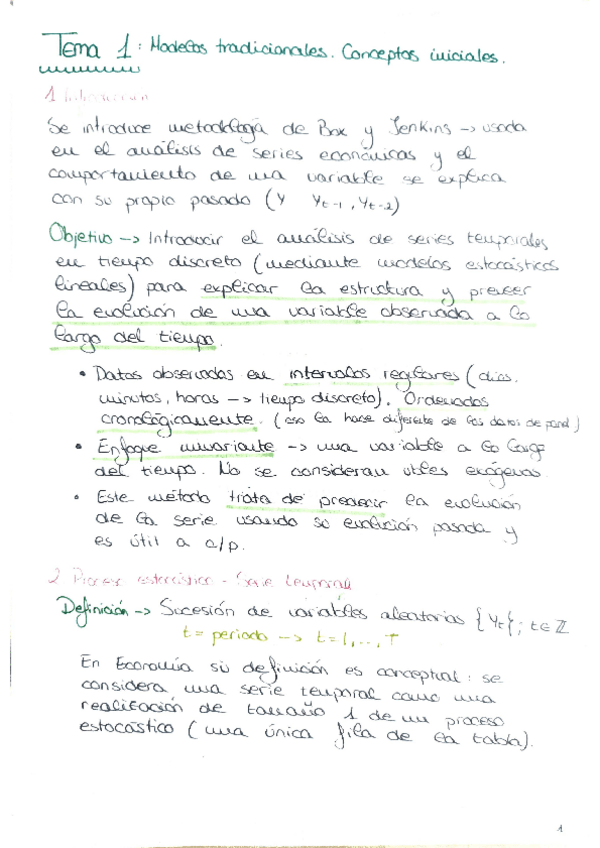 Tema 1: Modelos tradicionales. Conceptos iniciales.
1 Introducción
Se introduce metodología de Box y Jenkins -> usada
en el análisis de series económicas y el
comportamiento de una variable se explica
con su propio pasado (Y Yt-1, Yt-2)
Objetivo -> Introducir el análisis de series temporales
en tiempo discreto (mediante modelos estocásticos
lineales) para explicar la estructura y prever
la evolución de una variable observada a lo
largo del tiempo.
• Datos observados en intervalos regulares (días,
minutos, horas -> tiempo discreto). Ordenados
cronológicamente. (eso la hace diferente de los datos de panel)
• Enfoque univariante -> una variable a lo largo
del tiempo. No se consideran vbles exógenas.
• Este método trata de predecir la evolución
de la serie usando su evolución pasada y
es útil a c/p.
2 Proceso estocástico - Serie temporal
Definición -> Sucesión de variables aleatorias {Yt}; t∈ℤ
t = periodo -> t=1,...,T
En Economía su definición es conceptual: se
considera una serie temporal como una
realización de tamaño 1 de un proceso
estocástico (una única fila de la tabla).
1